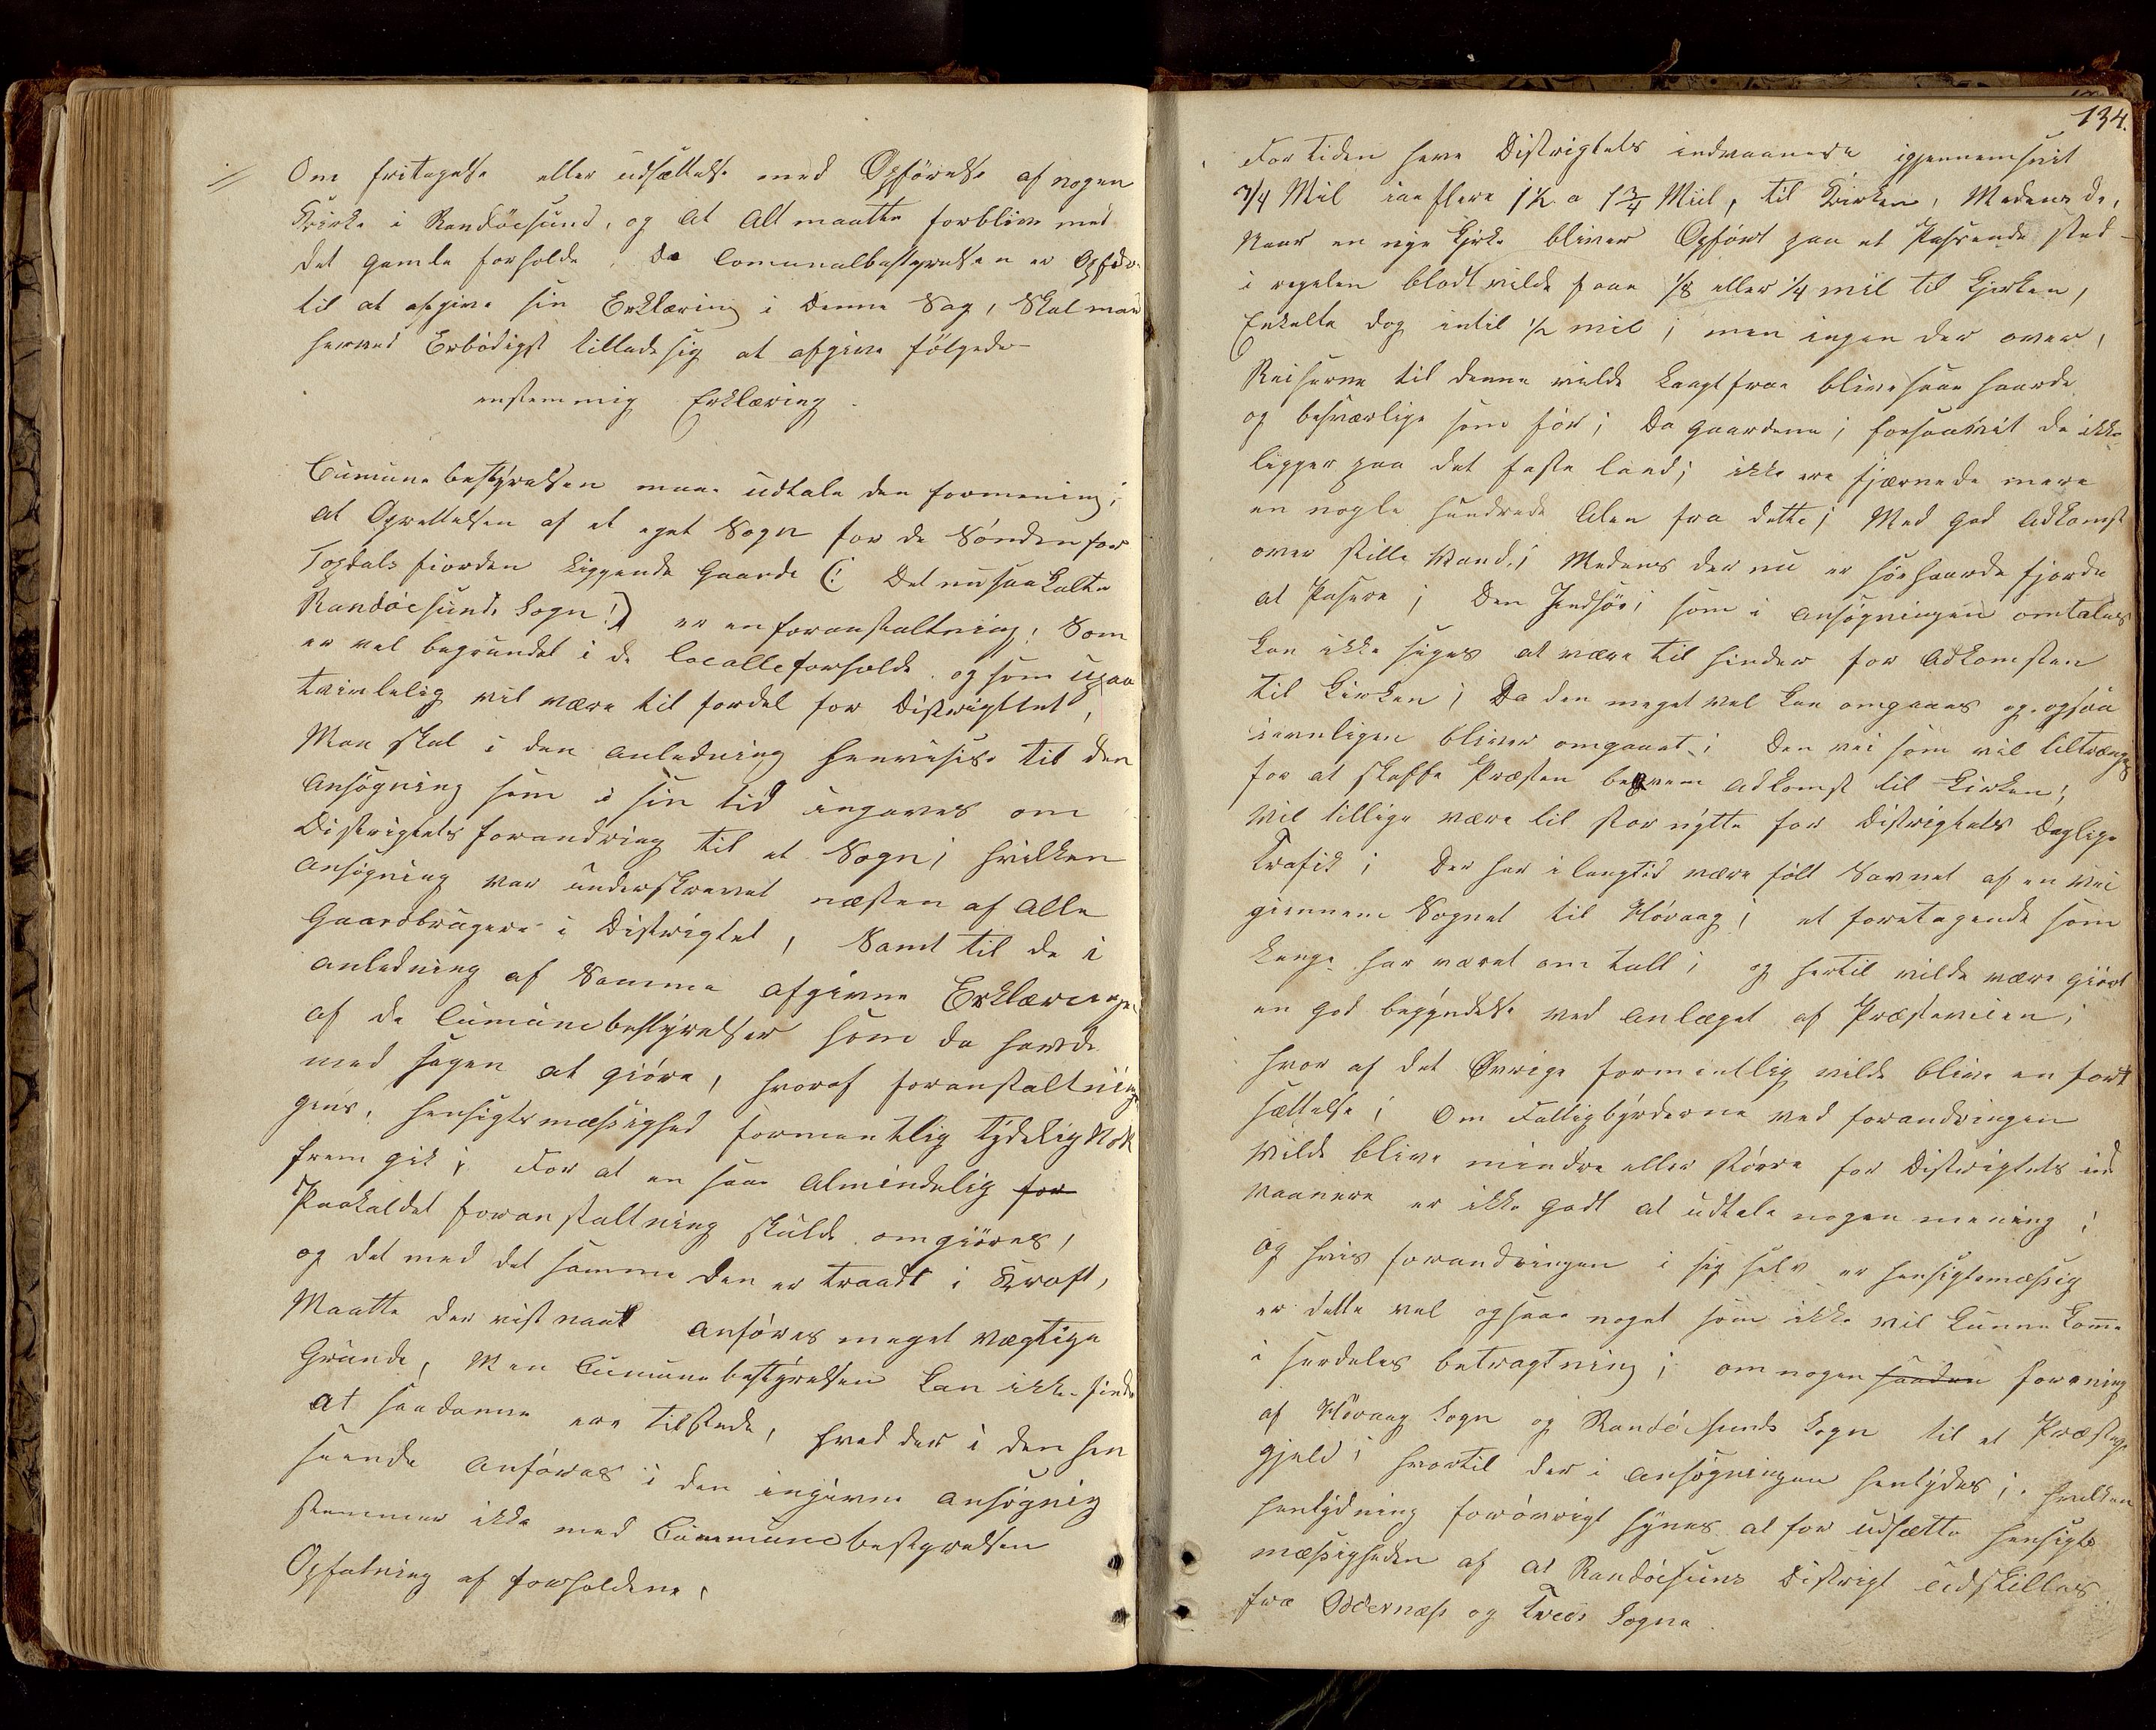 Om fritagelse eller udsættelse med Opförelse af nogen
Kirke i Randöesund, og at Alt maatte forblive med
det gamle forholde, Da Comunalbestyrelsen er Opfor-
til at afgive sin Erklæring i Denne Sag, Skal man
herved Erbödigst tillade sig at afgive fölgede-
enstemmig Erklæring.
Cumunebestyrelsen maae udtale den formening;
at Oprettelsen af et eget Sogn for de Sönden for
Topdalsfiorden Liggende Gaarde (: Det nu saa kalte
Randöesunds Sogn :) er en foranstaltning; Som
er vel begrundet i de Localle forholde og som upaa
tvivlelig vil være til fordel for Distrigttet,
Man skal i den anledning henvisise til den
Ansögning som i sin tid ingaves om
Distrigtets forandring til et Sogn; hvilken
ansögning var underskrevet næsten af Alle
Gaardbrugere i Distrigtet, Samt til de i
anledning af Samme afgivne Erklæringer
af de Cumunebestyrelser som da havde
med sagen at gióre, hvoraf foranstaltnin
gens, hensigtsmæssighed formentlig tÿdelig Nok
frem gik; For at en saa Almindelig for
Paakaldet foranstaltning skulde omgiöres,
og det med det samme den er traadt i Kraft,
Maatte der vist naak anföres meget vægtige
Grunde, Men Cumunebestÿrelsen kan ikke finde
at saadanne ere tilstede, hvad der i den hen
seende anföres i den ingivne ansögnig
stemmer ikke med Cummunebestyrelsen
Opfatning af forholdene,
134.
For tiden have Distrigtets indvaanere igjennemsnit
3/4 Mil iae flere 1 1/2 a 1 3/4 Miil, til Kirken, Medens de,
Naar en nye Kjrke bliver Opfört paa et Passende sted-
i regelen blodt vilde faae 1/8 eller 1/4 mil til Kjerken,
Enkelte dog intil 1/2 mil; men ingen der over,
Reiserne til denne vilde Langt fraa blive saa haarde
og besværlige som för; Da gaardene; forsaavit de ikke
ligger paa det faste land; ikke ere fjærnede mere
en nogle hundrede Alen fra dette; Med god Adkomst
over stille Vand; Medens der nu er söehaarde fjorde
at Pasere; Den Indsöe; som i Ansögningen omtales
kan ikke siges at være til hinder for Adkomsten
til Kirken; Da den meget vel kan omgaaes og ogsaa
iævnligen bliver omgaaet; Den vei som vil tiltrænges
for at skaffe Præsten beqvem Adkomst til Kirken;
Vil tillige være til stor nÿtte for Distrigtets Daglige
Trafik; Der har i langtid være fölt Savnet af en Vei
giennem Sognet til Hövaag; et foretagende som
Lenge har været om talt; og hertil vilde være giört
en god begÿndelse ved Anlæget af Præsteveien;
hvor af det Övrige formentlig vilde blive en fort
sættelse; Om Fattigbÿrderne ved forandringen
Vilde blive mindre eller större for Distrigtets ind
vaanere er ikke godt at udtale nogen mening;
og hvis forandringen i sig selv er hensigtsmæssig
er dette vel ogsaa noget som ikke vil kunne komme
i særdeles betragtning; om nogen saadan forening
af Hövaag Sogn og Randöesunds Sogn til et Præste
gjeld; hvortil der i ansögningen hentÿdes; hvilken
hentÿdning forövrigt sÿnes at for udsætte hensigts
mæssigheden af at Randöesuns Distrigt udskilles
fra Oddernæss og Tveds Sogne.